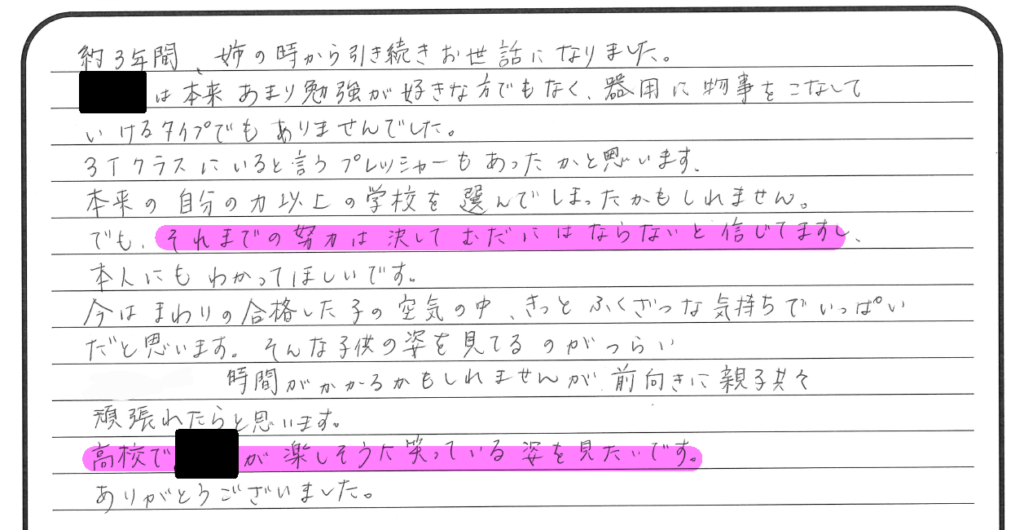 約3年間、姉の時から引き続きお世話になりました。
は本来あまり勉強が好きな方でもなく、器用に物事をこなして
いけるタイプでもありませんでした。
3Tクラスにいると言うプレッシャーもあったかと思います。
本来の自分の力以上の学校を選んでしまったかもしれません。
でも、それまでの努力は決してむだにはならないと信じてますし、
本人にもわかってほしいです。
今はまわりの合格した子の空気の中、きっとふくざつな気持ちでいっぱい
だと思います。そんな子供の姿を見てるのがつらい
時間がかかるかもしれませんが前向きに親子共々
頑張れたらと思います。
高校で が楽しそうに笑っている姿を見たいです。
ありがとうございました。